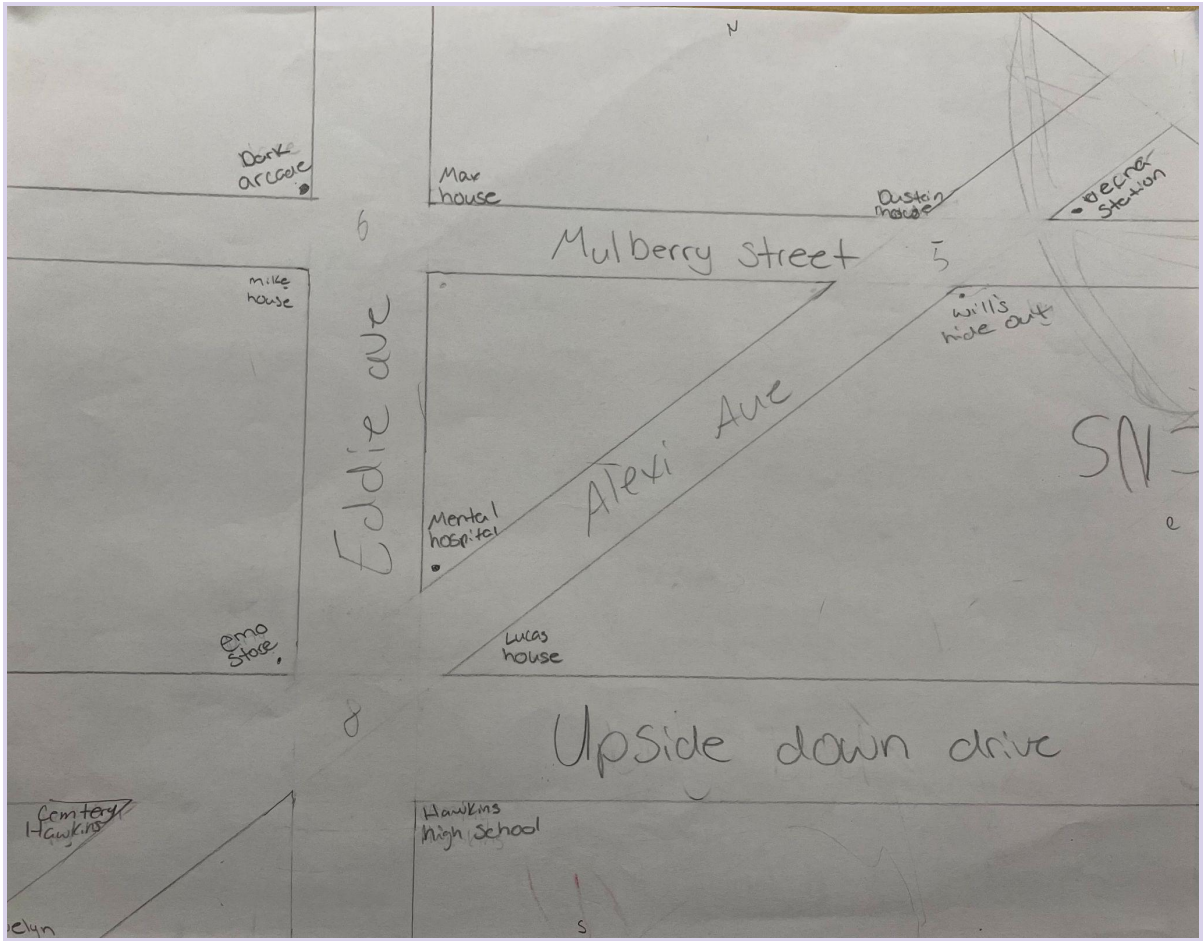 N
Dark
arcade
Max
house
Dustin
house
vecna
station
6
Mulberry street
5
mike
house
will's
hide out
Eddie ave
Alexi Ave
SN
e
Mental
hospital
emo
store
Lucas
house
8
Upside down drive
Cemtery
Hawkins
Hawkins
high school
elyn
S